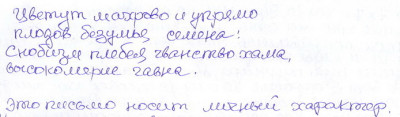 Цветут махрово и упрямо
плодов безумья семена:
Снобизм плебея, чванство хама,
высокомерие гавна.
Это письмо носит личный характер.